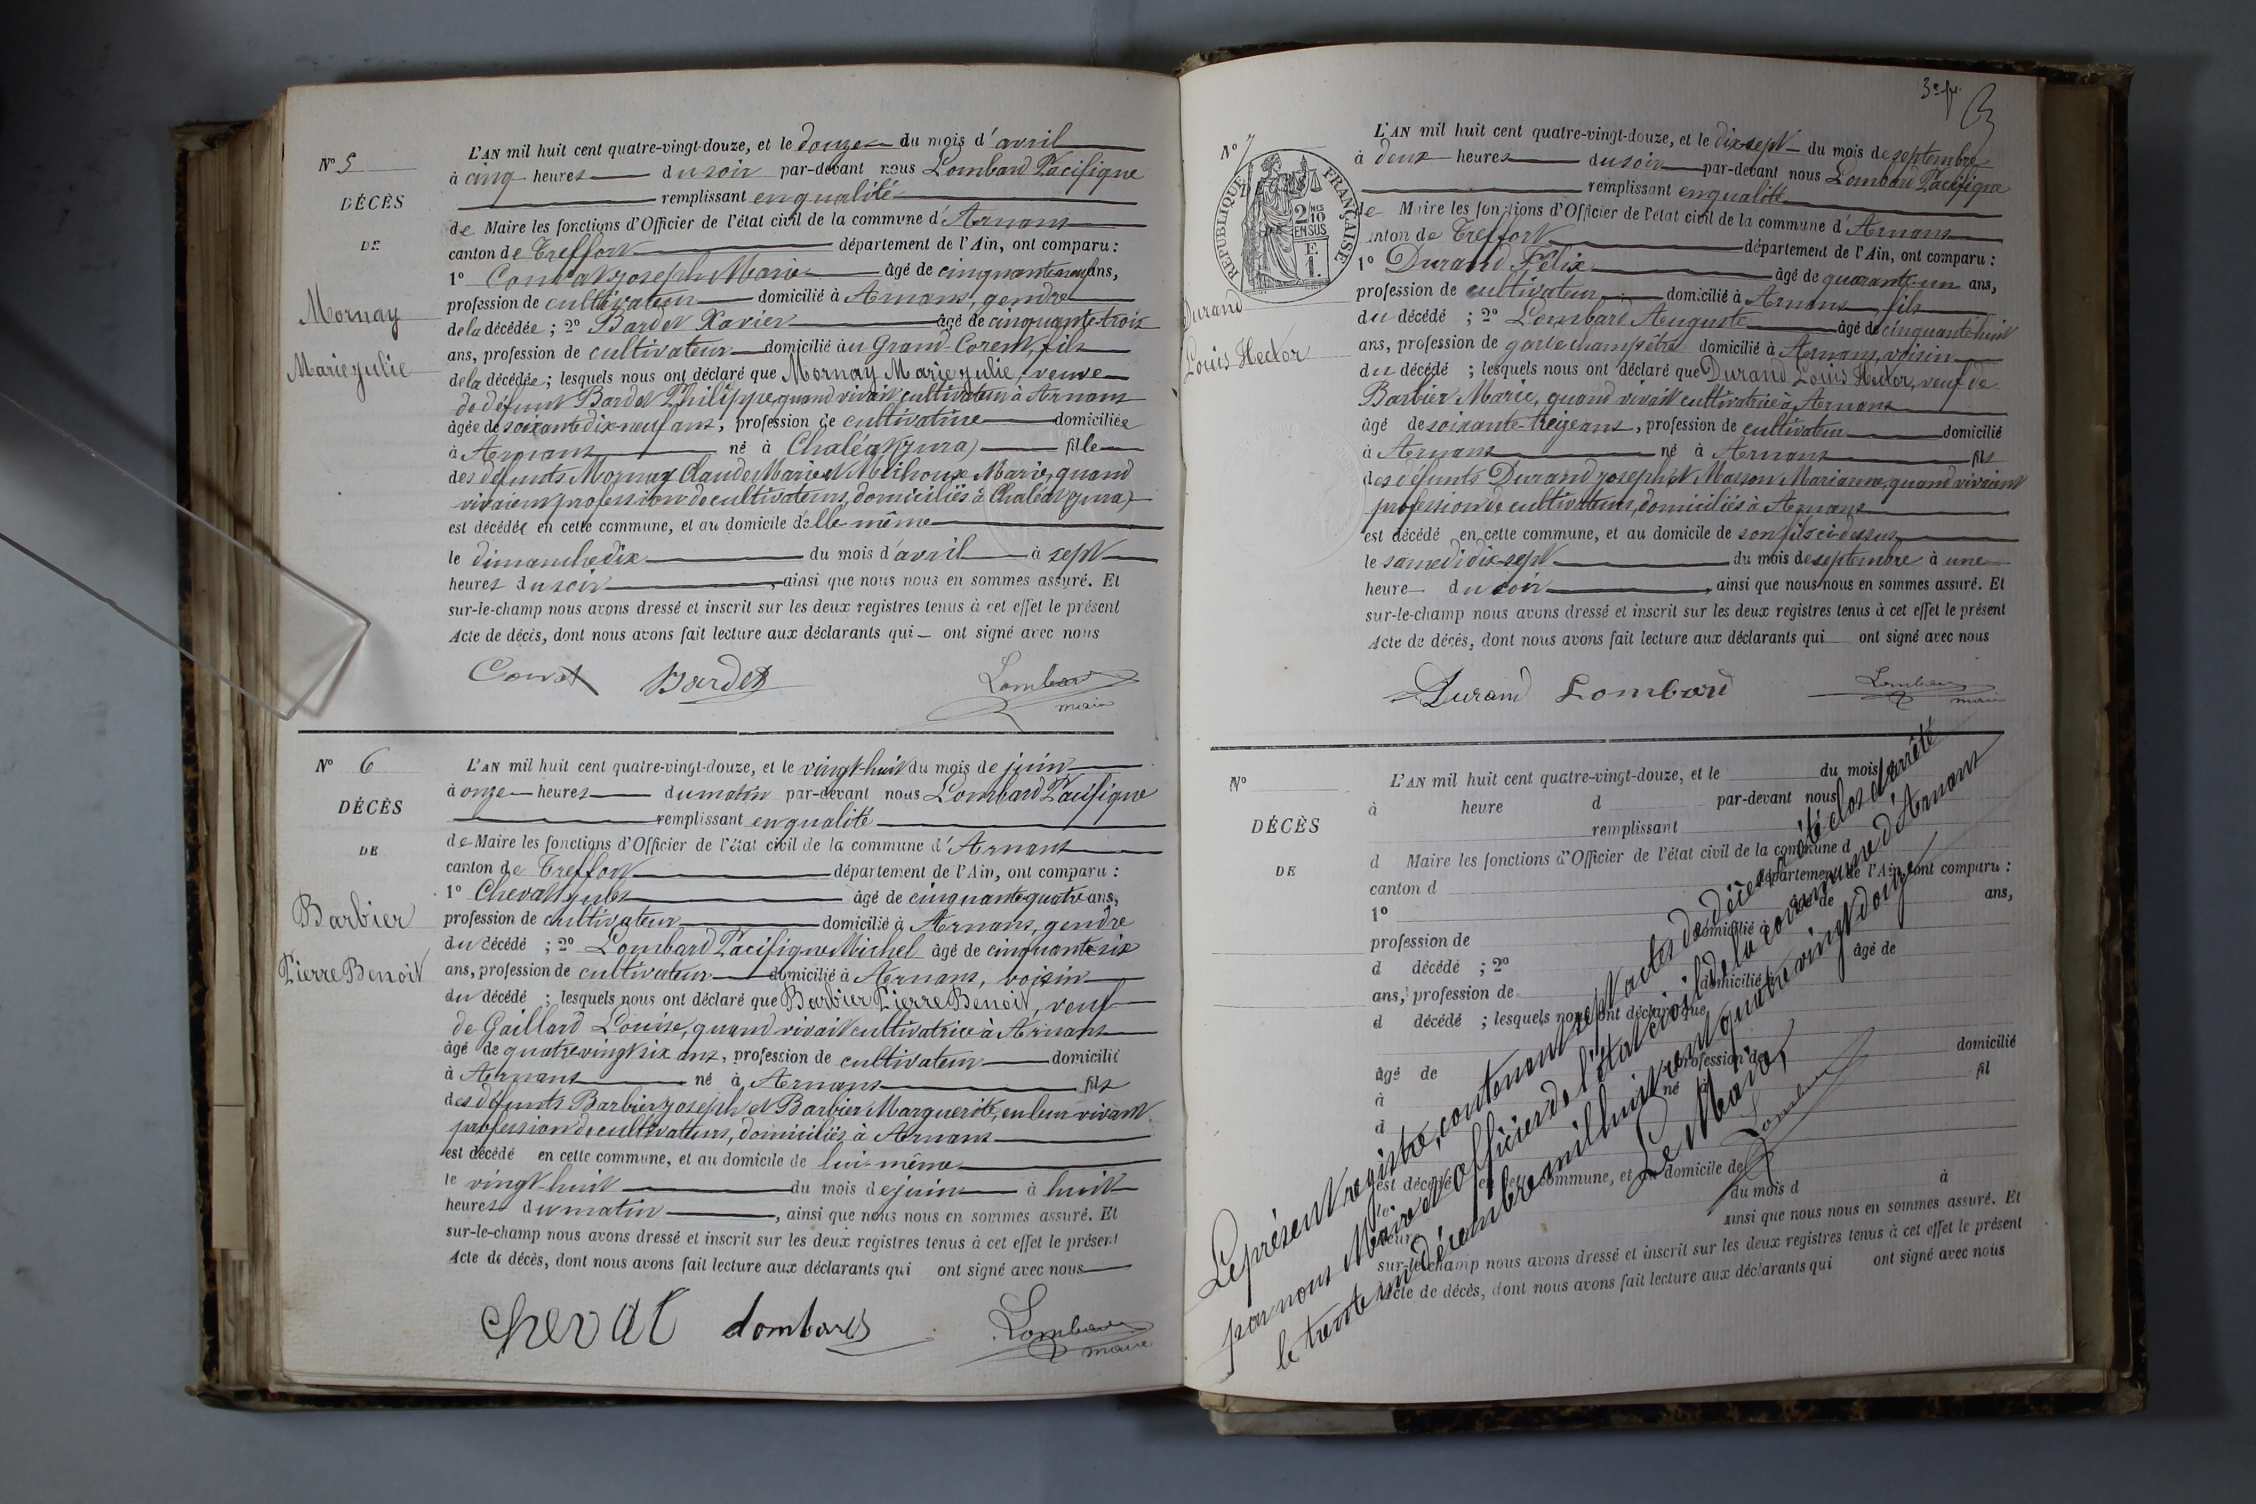 N° 5
DÉCÈS
DE
Mornay
Marie Julie
L'AN mil huit cent quatre-vingt-douze, et le douze du mois d'avril
à cinq heures du soir par-devant nous Lombard Pacifique
remplissant en qualité
de Maire les fonctions d'Officier de l'état civil de la commune d'Arnans
canton de Treffort département de l'Ain, ont comparu :
1° Convat Joseph Marie âgé de cinquante neuf ans,
profession de cultivateur domicilié à Arnans, gendre
de la décédée ; 2° Bardet Xavier âgé de cinquante-trois
ans, profession de cultivateur domicilié au Grand-Corent, fils
de la décédée ; lesquels nous ont déclaré que Mornay Marie Julie, veuve
de défunt Bardet Philippe, quand vivait cultivateur à Arnans
âgée de soixante dix-neuf ans, profession de cultivatrice domiciliée
à Arnans né à Chaléa (Jura) fille
des défunts Mornay Claude Marie et Marie, quand
vivaient profession de cultivateurs, domiciliés à Chaléa (Jura)
est décédée en cette commune, et au domicile d'elle même
le dimanche dix du mois d'avril à sept
heures du soir, ainsi que nous nous en sommes assuré. Et
sur-le-champ nous avons dressé et inscrit sur les deux registres tenus à cet effet le présent
Acte de décès, dont nous avons fait lecture aux déclarants qui ont signé avec nous
Convat Bardet Lombard
maire
N° 6
DÉCÈS
DE
Barbier
Pierre Benoit
L'AN mil huit cent quatre-vingt-douze, et le vingt-huit du mois de juin
à onze heures du matin par-devant nous Lombard Pacifique
remplissant en qualité
de Maire les fonctions d'Officier de l'état civil de la commune d'Arnans
canton de Treffort département de l'Ain, ont comparu :
1° Cheval Jules âgé de cinquante quatre ans,
profession de cultivateur domicilié à Arnans, gendre
du décédé ; 2° Lombard Pacifique Michel âgé de cinquante six
ans, profession de cultivateur domicilié à Arnans, voisin
du décédé ; lesquels nous ont déclaré que Barbier Pierre Benoit, veuf
de Gaillard Louise, quand vivait cultivatrice à Arnans
âgé de quatre vingt six ans, profession de cultivateur domicilié
à Arnans né à Arnans fils
des défunts Barbier Joseph et Barbier Marguerite, en leur vivant
profession de cultivateurs, domiciliés à Arnans
est décédé en cette commune, et au domicile de lui-même
le vingt-huit du mois de juin à huit
heures du matin, ainsi que nous nous en sommes assuré. Et
sur-le-champ nous avons dressé et inscrit sur les deux registres tenus à cet effet le présent
Acte de décès, dont nous avons fait lecture aux déclarants qui ont signé avec nous
cheval Lombard Lombard
maire
3e f.
N° 7
RÉPUBLIQUE FRANÇAISE
2/10 EN SUS
F. 1.
Durand
Louis Hector
L'AN mil huit cent quatre-vingt-douze, et le dix sept du mois de septembre
à deux heures du soir par-devant nous Lombard Pacifique
remplissant en qualité
de Maire les fonctions d'Officier de l'état civil de la commune d'Arnans
canton de Treffort département de l'Ain, ont comparu :
1° Durand Félix âgé de quarante-un ans,
profession de cultivateur domicilié à Arnans, fils
du décédé ; 2° Lombard Auguste âgé de cinquante huit
ans, profession de garde champêtre domicilié à Arnans, voisin
du décédé ; lesquels nous ont déclaré que Durand Louis Hector, veuf de
Barbier Marie, quand vivait cultivatrice à Arnans
âgé de soixante-treize ans, profession de cultivateur domicilié
à Arnans né à Arnans fils
des défunts Durand Joseph et Masson Marianne, quand vivaient
profession de cultivateurs, domiciliés à Arnans
est décédé en cette commune, et au domicile de son fils ci-dessus
le samedi dix-sept du mois de septembre à une
heure du soir, ainsi que nous nous en sommes assuré. Et
sur-le-champ nous avons dressé et inscrit sur les deux registres tenus à cet effet le présent
Acte de décès, dont nous avons fait lecture aux déclarants qui ont signé avec nous
Durand Lombard Lombard
maire
N°
DÉCÈS
DE
L'AN mil huit cent quatre-vingt-douze, et le du mois d
à heure d par-devant nous
remplissant
d Maire les fonctions d'Officier de l'état civil de la commune d
canton d département de l'Ain, ont comparu :
1° âgé de ans,
profession de domicilié à
d décédé ; 2° âgé de
ans, profession de domicilié à
d décédé ; lesquels nous ont déclaré que
âgé de profession de domicilié
à né à fil
d
est décédé en cette commune, et au domicile de
le du mois d à
heure ainsi que nous nous en sommes assuré. Et
sur-le-champ nous avons dressé et inscrit sur les deux registres tenus à cet effet le présent
Acte de décès, dont nous avons fait lecture aux déclarants qui ont signé avec nous
Le présent registre, contenant sept actes de décès a été clos et arrêté
par nous Maire et officier de l'état civil de la commune d'Arnans
le trente un décembre mil huit cent quatre vingt douze
Le Maire,
Lombard